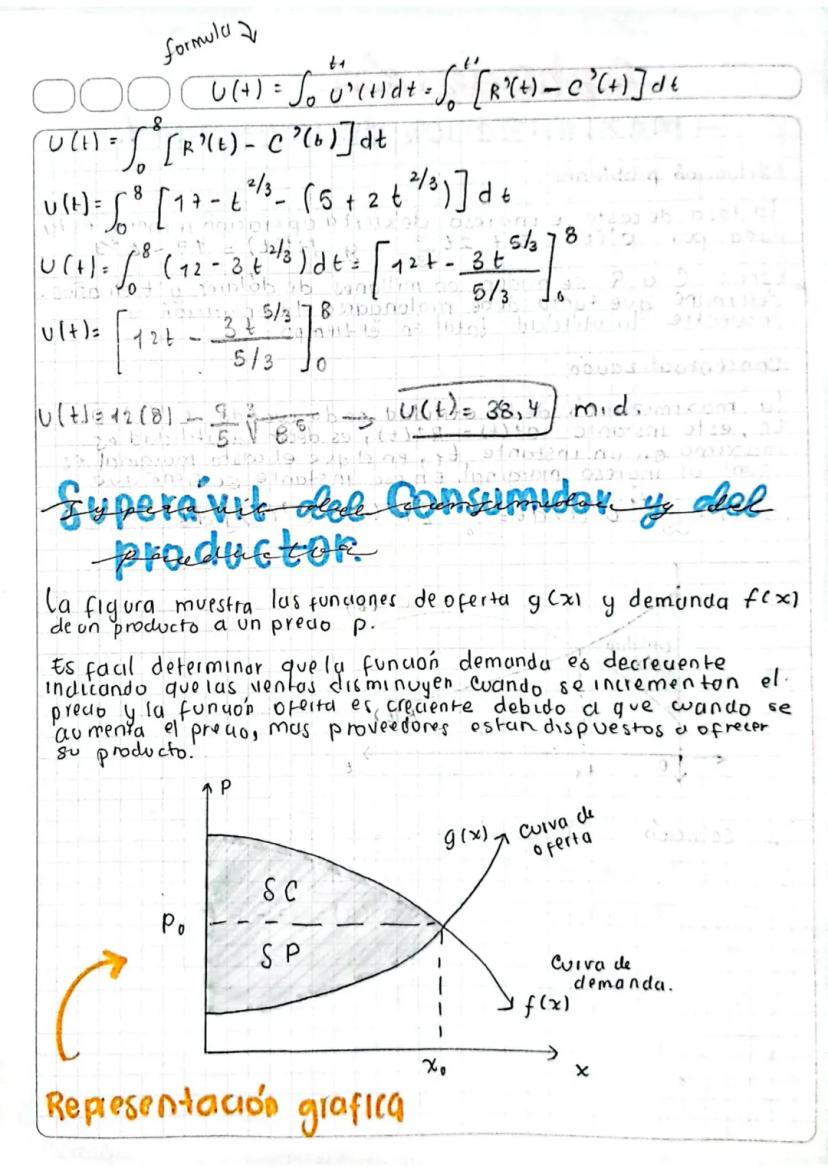 formula
U(t) = ∫₀^t1 U'(t)dt = ∫₀^t1 [R'(t) - C'(t)] dt
U(t) = ∫₀^8 [R'(t) - C'(b)] dt
U(t) = ∫₀^8 [17 - t^2/3 - (5 + 2t^2/3)] dt
U(t) = ∫₀^8 (12 - 3t^2/3) dt = [12t - 3t^5/3 / 5/3]₀^8
U(t) = [12t - 3t^5/3 / 5/3]₀^8
U(t) = 12(8) - 9/5 ∛8^5 → U(t) = 38,4 mid.
Superávit del Consumidor y del
productor.
La figura muestra las funciones de oferta g(x) y demanda f(x)
de un producto a un precio p.
Es facil determinar que la función demanda es decreciente
indicando que las ventas disminuyen cuando se incrementan el
precio y la función oferta es creciente debido a que cuando se
aumenta el precio, mas proveedores estan dispuestos a ofrecer
su producto.
P
g(x) curva de
oferta
SC
P₀
SP
Curva de
demanda.
f(x)
x₀
x
Representación grafica